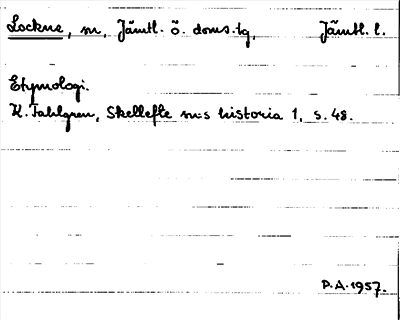 Lockne, sn, Jämtl. ö. doms.lg, Jämtl. l.
Etymologi.
K. Fahlgren, Skellefte sn:s historia 1, s. 48.
P.A. 1957.